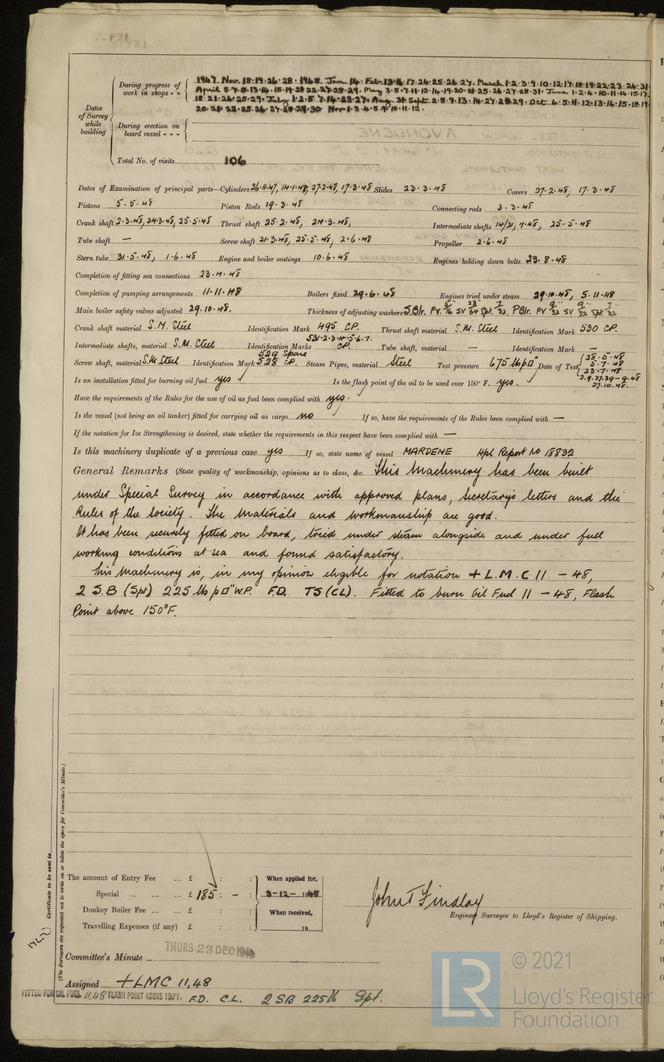 Dates of Survey while building
During progress of work in shops - -
1947. Nov. 18.19.26.28. 1948. Jan. 14. Feb. 13.16.17.24.25.26.27. March 1.2.3.9.10.12.17.18.19.22.23.24.31.
April 5.7.8.13.14.15.19.21.22.27.28.29. May 3.5.7.11.13.14.19.20.21.25.26.27.28.31. June 1.2.4.10.11.14.15.17.
18.21.24.25.29. July 1.2.5.7.14.23.27. Aug. 31. Sept. 2.8.9.13.14.27.28.29. Oct. 4.5.11.12.13.14.15.18.19.
20.21.22.25.26.27.28.29.30 Nov 1.2.4.5.9.10.11.12.
During erection on board vessel - - -
Total No. of visits 106
Dates of Examination of principal parts—Cylinders 26.11.47, 14.1.48, 27.2.48, 17.3.48 Slides 23.3.48 Covers 27.2.48, 17.3.48
Pistons 5.5.48 Piston Rods 19.3.48 Connecting rods 3.3.48
Crank shaft 2.3.48, 24.3.48, 25.5.48 Thrust shaft 25.2.48, 24.3.48, Intermediate shafts 25.5.48
Tube shaft — Screw shaft 21.3.48, 25.5.48, 2.6.48 Propeller 2.6.48
Stern tube 31.5.48, 1.6.48 Engine and boiler seatings 10.6.48 Engines holding down bolts 23.8.48
Completion of fitting sea connections 23.4.48
Completion of pumping arrangements 11.11.48 Boilers fixed 29.6.48 Engines tried under steam 29.10.48, 5.11.48
Main boiler safety valves adjusted 29.10.48. Thickness of adjusting washers S.Blr. PV SV Spt. P Blr. PV SV Spt.
Crank shaft material S.M. Steel Identification Mark 495 CP. Thrust shaft material S.M. Steel Identification Mark 530 CP.
Intermediate shafts, material S.M. Steel Identification Marks 531.2.3.4.5.6.7. CP. Tube shaft, material — Identification Mark —
Screw shaft, material S.M. Steel Identification Mark 529 Spare 528 CP. Steam Pipes, material Steel Test pressure 675 lb p□" Date of Test 28.5.48 5.7.48 23.7.48 27.10.48.
Is an installation fitted for burning oil fuel yes Is the flash point of the oil to be used over 150° F. yes.
Have the requirements of the Rules for the use of oil as fuel been complied with yes.
Is the vessel (not being an oil tanker) fitted for carrying oil as cargo no If so, have the requirements of the Rules been complied with —
If the notation for Ice Strengthening is desired, state whether the requirements in this respect have been complied with —
Is this machinery duplicate of a previous case yes If so, state name of vessel MARDENE Hpl Report No 18832
General Remarks (State quality of workmanship, opinions as to class, &c. This Machinery has been built
under Special Survey in accordance with approved plans, Secretary's letters and the
Rules of the Society. The materials and workmanship are good.
It has been securely fitted on board, tried under steam alongside and under full
working conditions at sea and found satisfactory.
This Machinery is, in my opinion eligible for notation + L.M.C 11 – 48,
2 S.B (Spt) 225 lb p□" W.P. F.D. TS (CL). Fitted to burn Oil Fuel 11 – 48, Flash
Point above 150°F.
Certificate to be sent to
(The Surveyors are requested not to write on or below the space for Committee's Minute.)
The amount of Entry Fee ... £ : :
Special ... ... £ 185 : – :
Donkey Boiler Fee ... ... £ : :
Travelling Expenses (if any) £ : :
When applied for,
3-12- 1948
When received,
19
John T Findlay
Engineer Surveyor to Lloyd's Register of Shipping.
THURS 23 DEC 1948
Committee's Minute
Assigned + LMC 11,48
FITTED FOR OIL FUEL 11,48 FLASH POINT ABOVE 150°F. F.D. C.L. 2 SB 225 lb Spt.
LR
© 2021
Lloyd's Register
Foundation